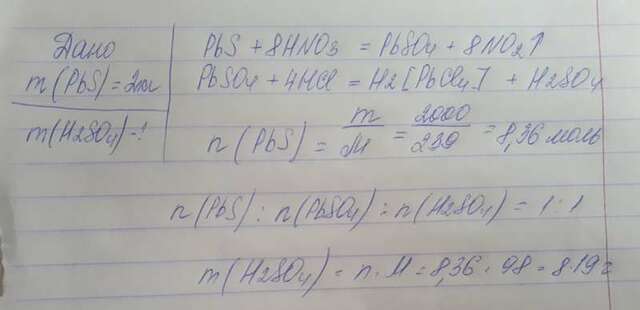 Дано
m(PbS) = 2кг
m(H2SO4) - ?
PbS + 8HNO3 = PbSO4 + 8NO2↑
PbSO4 + 4HCl = H2[PbCl4] + H2SO4
n(PbS) = m/M = 2000/239 = 8,36 моль
n(PbS) : n(PbSO4) : n(H2SO4) = 1:1
m(H2SO4) = n·M = 8,36 · 98 = 819 г